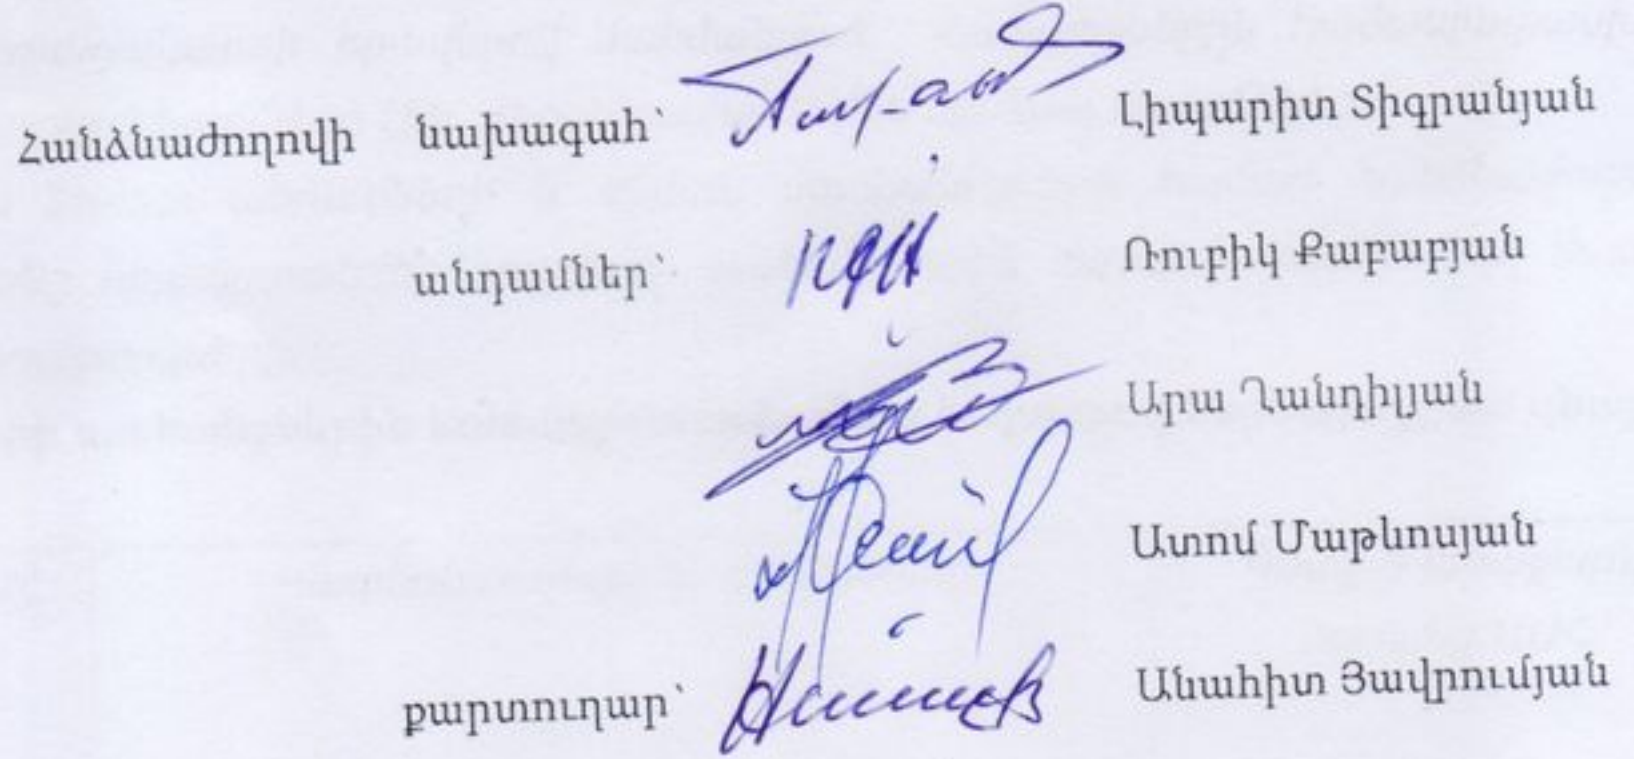 Հանձնաժողովի նախագահ՝ Լիպարիտ Տիգրանյան
անդամներ՝ Ռուբիկ Քաբաբյան
Արա Ղանդիլյան
Ատոմ Մաթևոսյան
քարտուղար՝ Անահիտ Յավրումյան